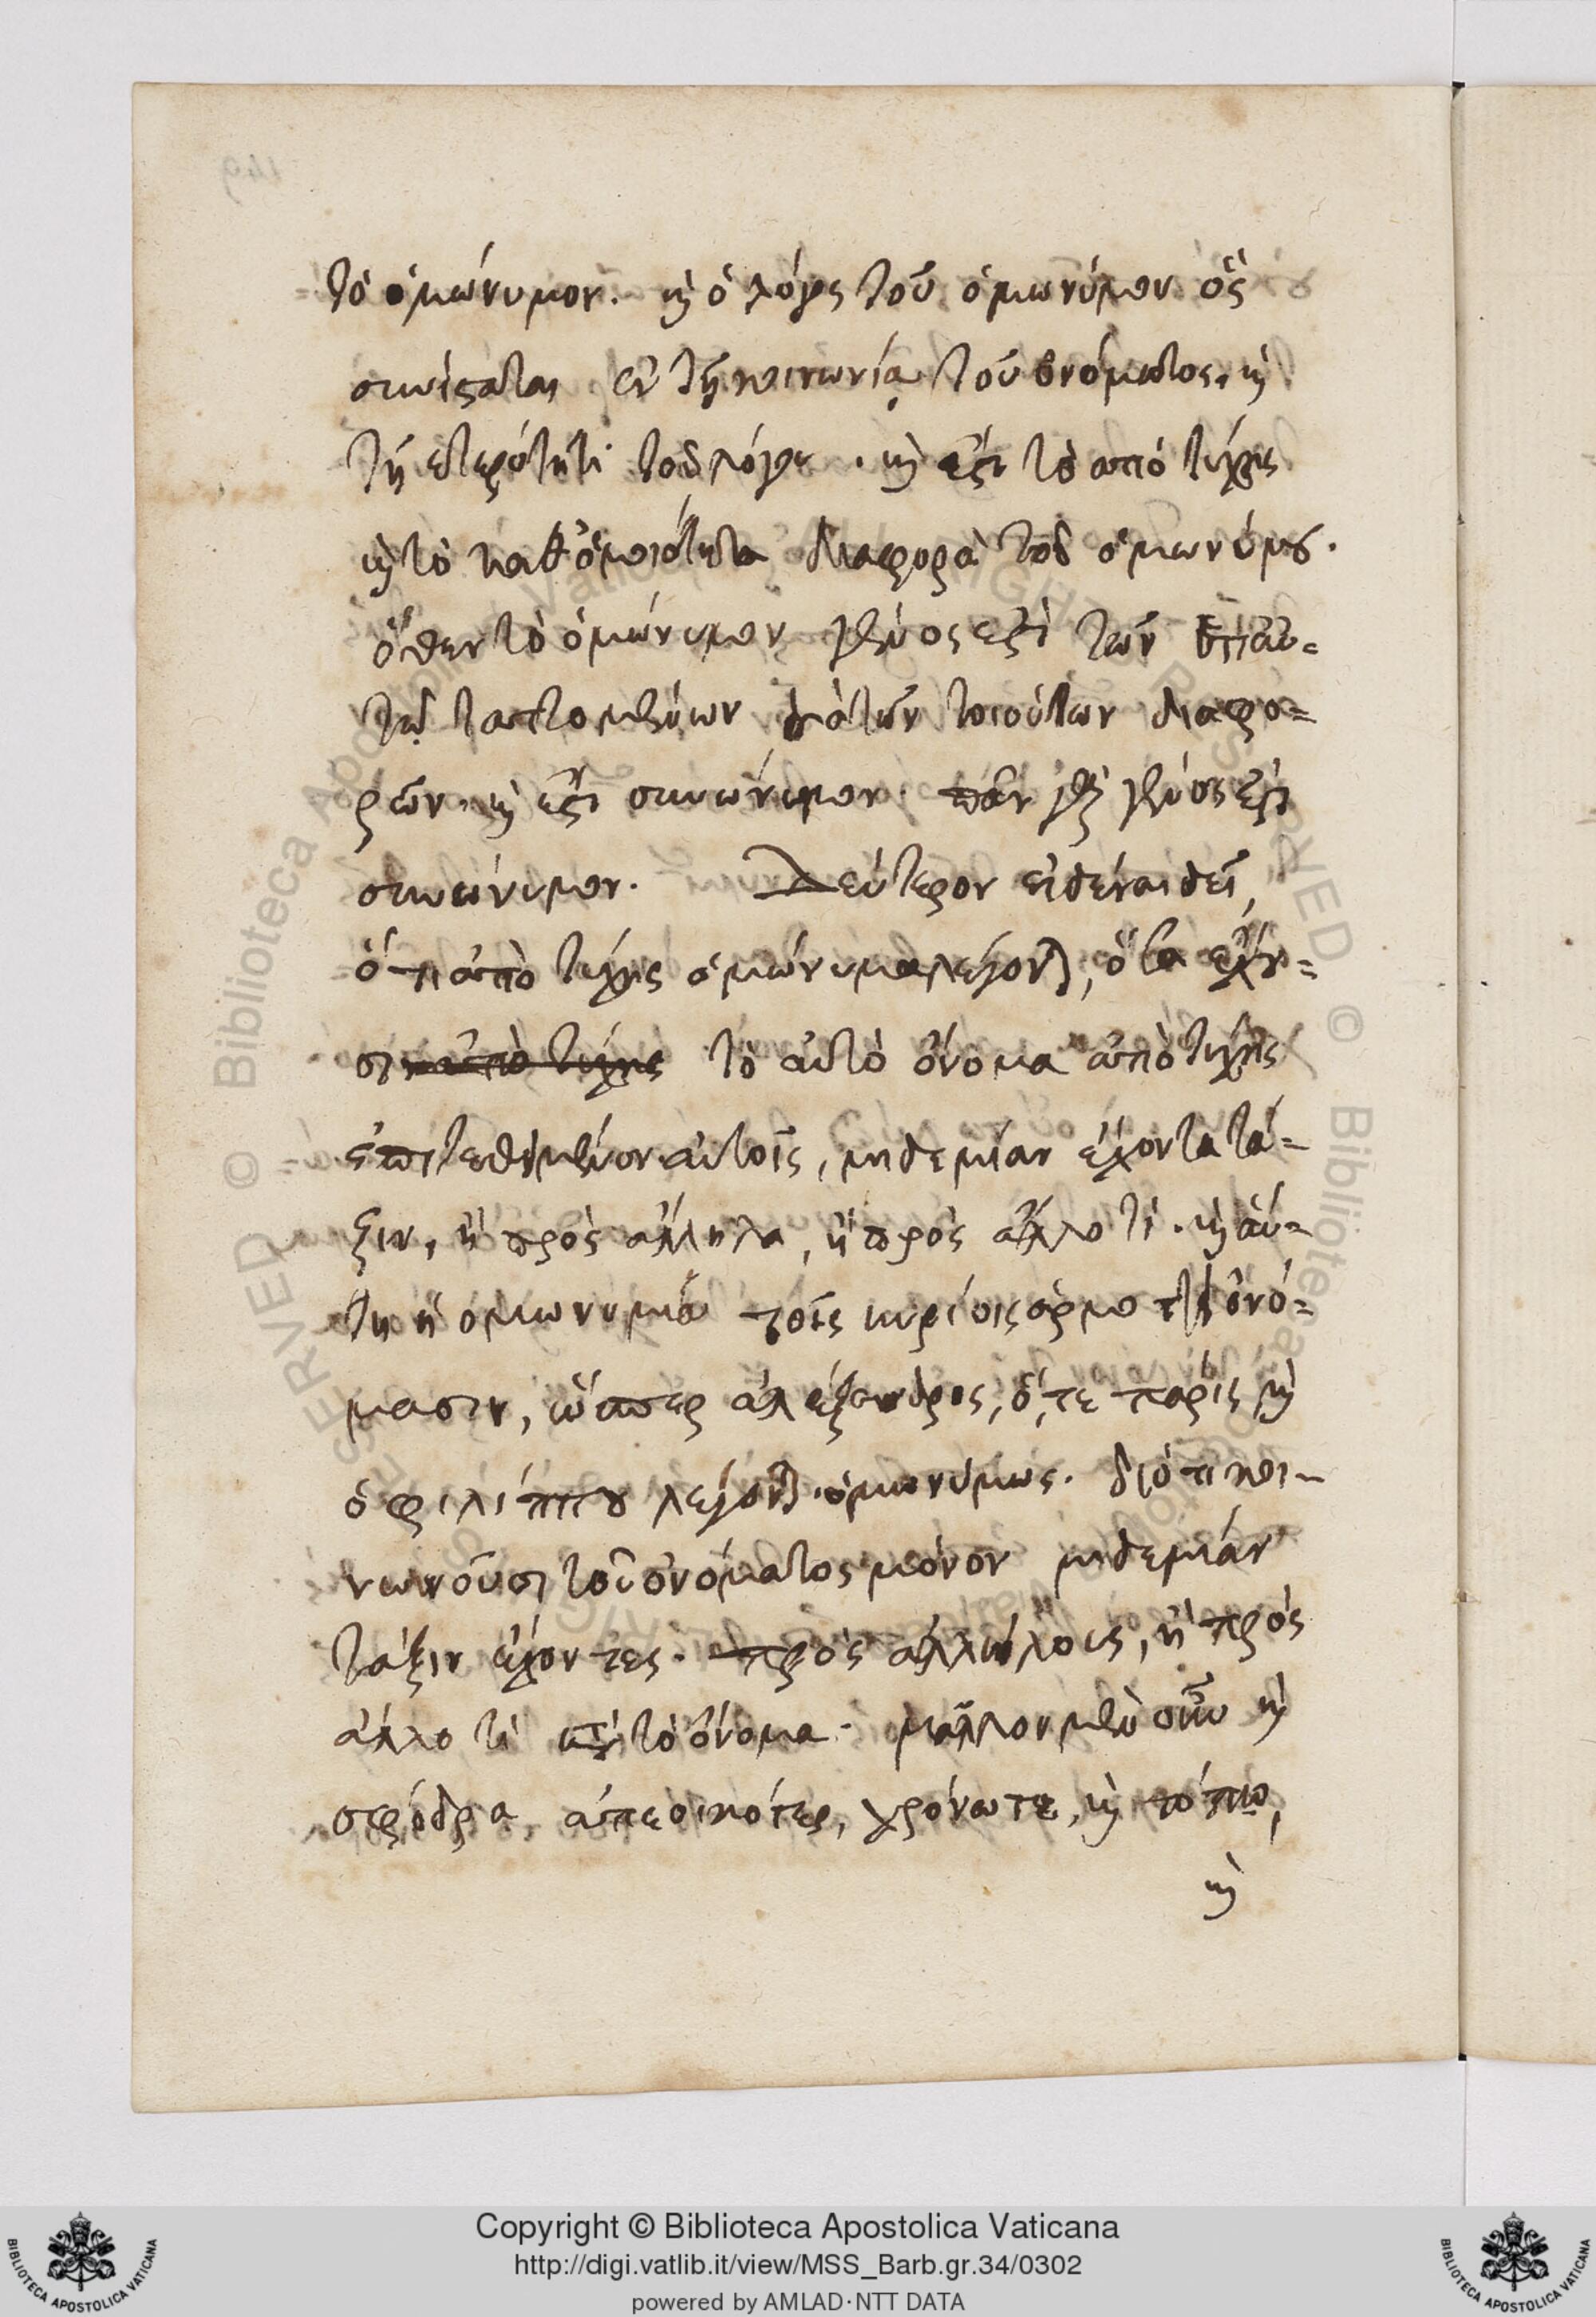 τὸ ὁμώνυμον. καὶ ὁ λόγος τοῦ ὁμωνύμου ὃς
συνίσταται ἐν τῇ κοινωνίᾳ τοῦ ὀνόματος. καὶ
τῇ ἑτερότητι τοῦ λόγου. καὶ ἔστι τὸ ἀπὸ τύχης
καὶ τὸ καθ' ὁμοιότητα διαφορὰ τοῦ ὁμωνύμου.
ὅθεν τὸ ὁμώνυμον γένος ἐστὶ τῶν ὑπ' αὐ=
τῷ ταττομένων τῶν τοιούτων διαφο=
ρῶν. καὶ ἔστι συνώνυμον. πᾶν γὰρ γένος ἐστὶ
συνώνυμον. Δεύτερον εἰδέναι δεῖ,
ὅτι ἀπὸ τύχης ὁμώνυμα λέγονται, ὅσα ἔχου=
σιν ἀπὸ τύχης τὸ αὐτὸ ὄνομα ἀπὸ τύχης
ἐπιτεθειμένον αὐτοῖς, μηδεμίαν ἔχοντα τά=
ξιν, ἢ πρὸς ἄλληλα, ἢ πρὸς ἄλλο τι. καὶ αὕ=
τη ἡ ὁμωνυμία τοῖς κυρίοις ἁρμόττει ὀνό=
μασιν, ὥσπερ ἀλέξανδρος, ὅ,τε πάρις καὶ
ὁ φιλίππου λέγονται ὁμωνύμως. διότι κοι=
νωνοῦσι τοῦ ὀνόματος μόνον μηδεμίαν
τάξιν ἔχοντες. πρὸς ἀλλήλους, ἢ πρὸς
ἄλλο τι κατὰ τὸ ὄνομα. μᾶλλον μὲν οὖν καὶ
σφόδρα ἀπεοικότες, χρόνῳ τε, καὶ τόπῳ,
καὶ
Copyright © Biblioteca Apostolica Vaticana
http://digi.vatlib.it/view/MSS_Barb.gr.34/0302
powered by AMLAD·NTT DATA